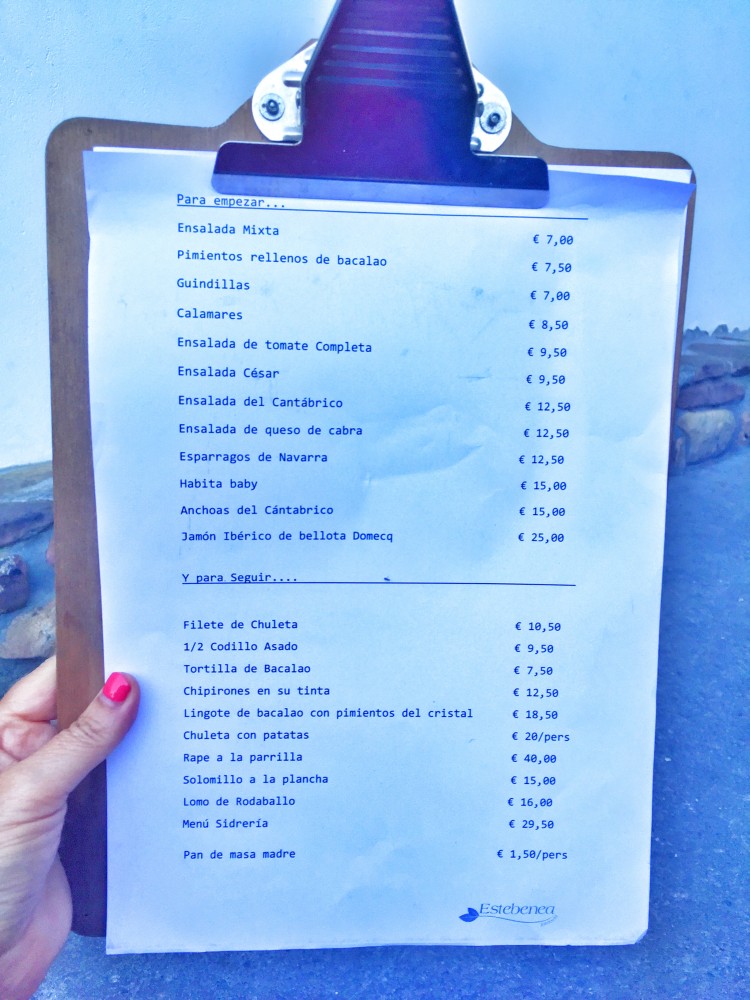 Para empezar...
Ensalada Mixta € 7,00
Pimientos rellenos de bacalao € 7,50
Guindillas € 7,00
Calamares € 8,50
Ensalada de tomate Completa € 9,50
Ensalada César € 9,50
Ensalada del Cantábrico € 12,50
Ensalada de queso de cabra € 12,50
Esparragos de Navarra € 12,50
Habita baby € 15,00
Anchoas del Cántabrico € 15,00
Jamón Ibérico de bellota Domecq € 25,00
Y para Seguir....
Filete de Chuleta € 10,50
1/2 Codillo Asado € 9,50
Tortilla de Bacalao € 7,50
Chipirones en su tinta € 12,50
Lingote de bacalao con pimientos del cristal € 18,50
Chuleta con patatas € 20/pers
Rape a la parrilla € 40,00
Solomillo a la plancha € 15,00
Lomo de Rodaballo € 16,00
Menú Sidrería € 29,50
Pan de masa madre € 1,50/pers
Estebenea